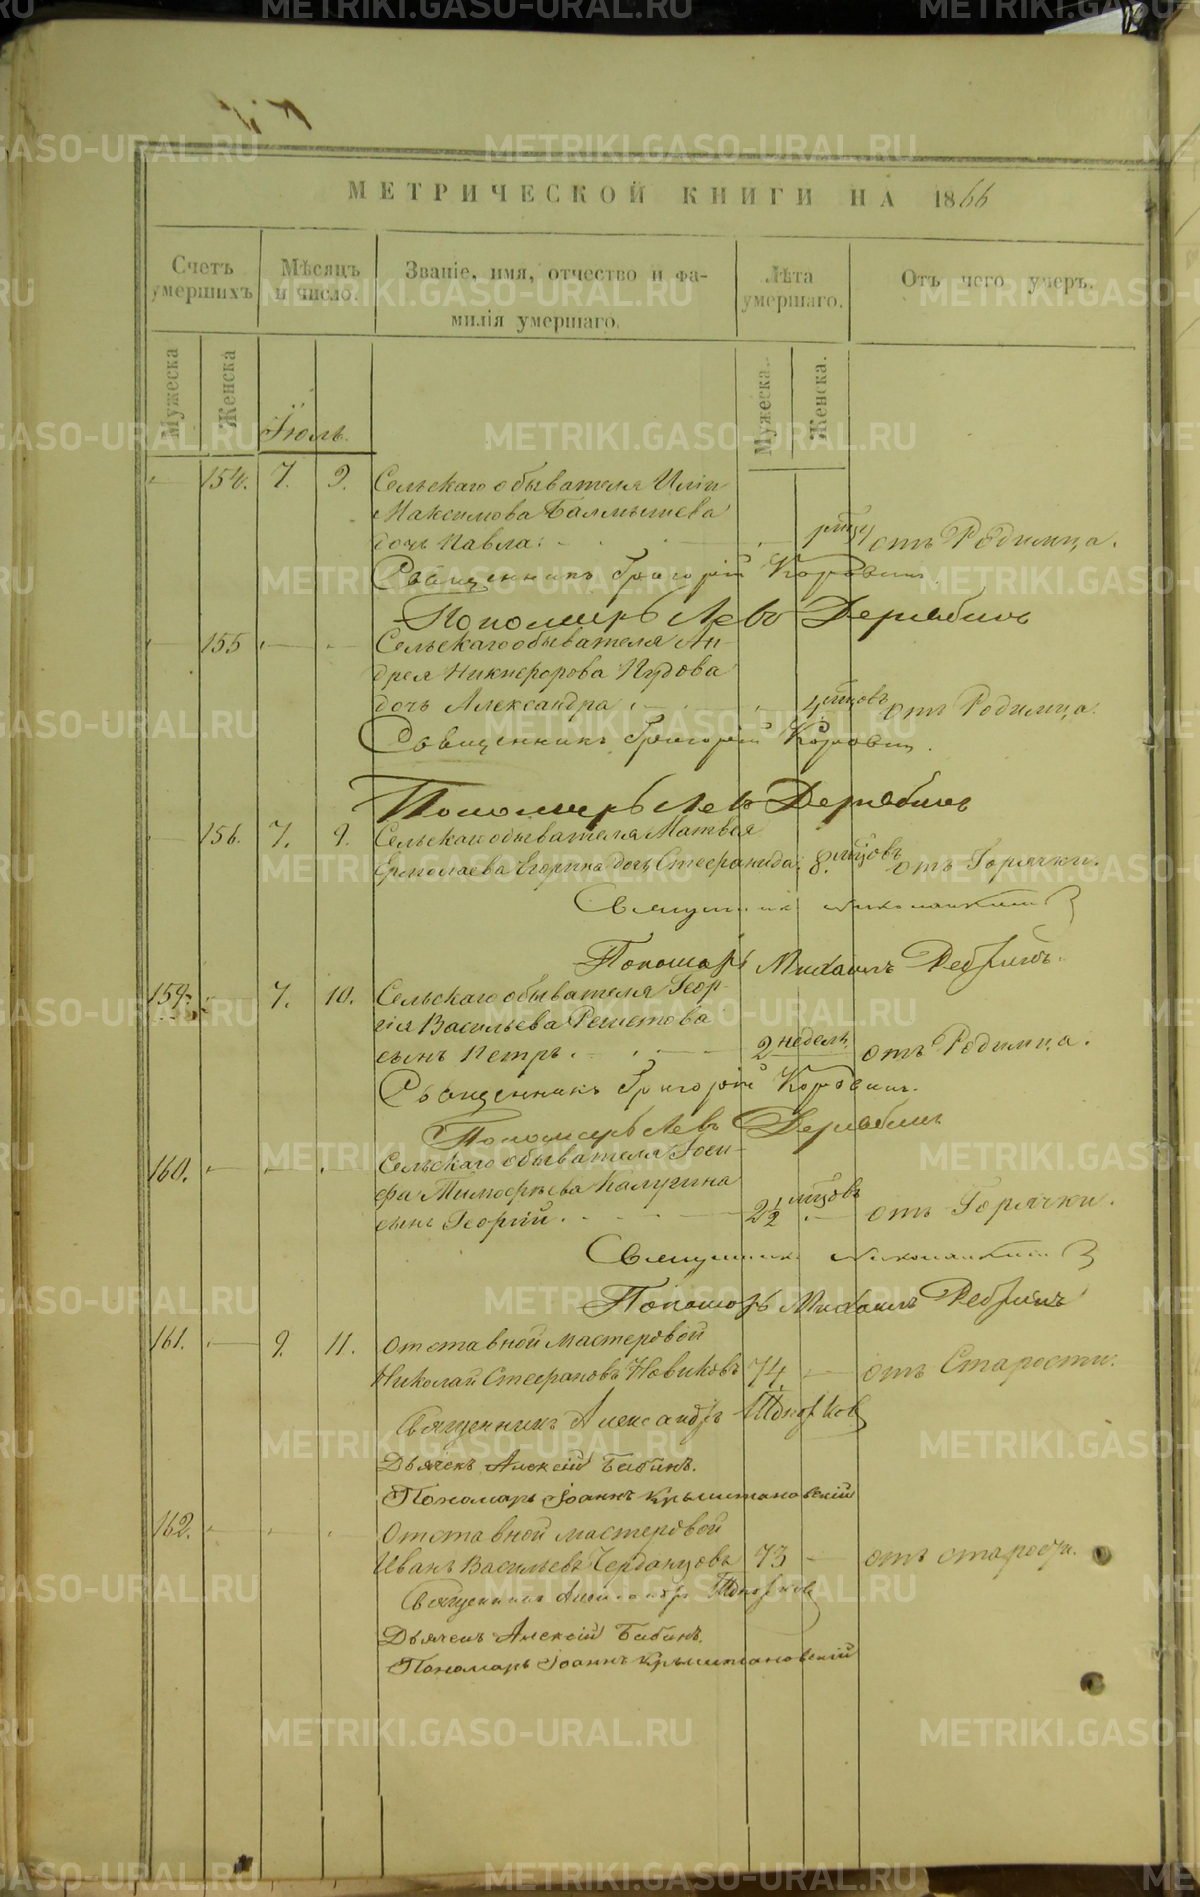 МЕТРИЧЕСКОЙ КНИГИ НА 1866
Счетъ умершихъ
Мѣсяцъ и число.
Званіе, имя, отчество и фа-
милія умершаго.
Лѣта умершаго.
Отъ чего умеръ.
Мужеска
Женска
Мужеска.
Женска.
Іюль.
154. 7. 9. Сельскаго обывателя Иліи
Максимова Балмышева
дочь Павла. отъ Родимца.
Священникъ Григорій Коровин.
Пономарь Левъ Дерябинъ
155 Сельскаго обывателя Ан-
дрея Никифорова Пудова
дочь Александра. 4 мѣсцовъ отъ Родимца.
Священникъ Григорій Коровин.
Пономарь Левъ Дерябинъ
156. 7. 9. Сельскаго обывателя Матвея
Ермолаева Егорина дочь Стефанида. 8. мѣсцовъ отъ Горячки.
Священникъ
Пономарь Михаилъ
159. 7. 10. Сельскаго обывателя Геор-
гія Васильева Решетова
сынъ Петръ. 2 недель отъ Родимца.
Священникъ Григорій Коровинъ.
Пономарь Левъ Дерябинъ
160. Сельскаго обывателя Іоси-
фа Тимофѣева Калугина
сынъ Георгій. 2½ мѣсцовъ отъ Горячки.
Священникъ
Пономарь Михаилъ
161. 9. 11. Отставной мастеровой
Николай Стефановъ Новиковъ 74. отъ Старости.
Священникъ Александръ
Дьячекъ Алексій Бабинъ.
Пономарь Іоаннъ Крыжановскій
162. Отставной мастеровой
Иванъ Васильевъ Черданцовъ 73 отъ старости.
Священникъ Александръ
Дьячекъ Алексій Бабинъ.
Пономарь Іоаннъ Крыжановскій
METRIKI.GASO-URAL.RU